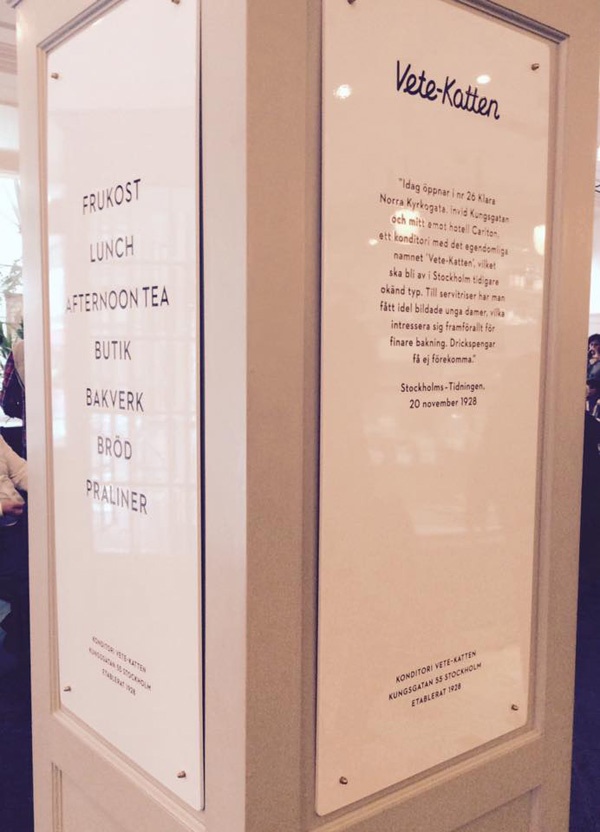 FRUKOST
LUNCH
AFTERNOON TEA
BUTIK
BAKVERK
BRÖD
PRALINER
KONDITORI VETE-KATTEN
KUNGSGATAN 55 STOCKHOLM
ETABLERAT 1928
Vete-Katten
"Idag öppnar i nr 26 Klara
Norra Kyrkogata, invid Kungsgatan
och mitt emot hotell Carlton,
ett konditori med det egendomliga
namnet 'Vete-Katten', vilket
ska bli av i Stockholm tidigare
okänd typ. Till servitriser har man
fått idel bildade unga damer, vilka
intressera sig framförallt för
finare bakning. Drickspengar
få ej förekomma."
Stockholms-Tidningen,
20 november 1928
KONDITORI VETE-KATTEN
KUNGSGATAN 55 STOCKHOLM
ETABLERAT 1928